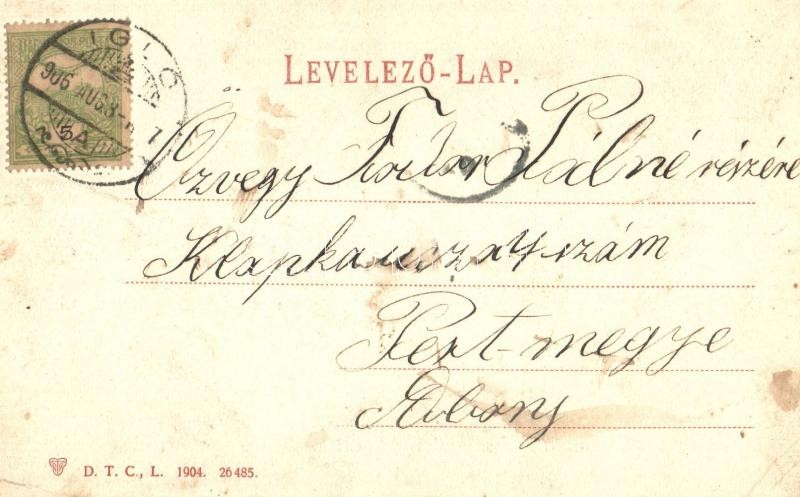 IGLÓ
906 AUG 8
LEVELEZŐ-LAP.
Özvegy Fodor Pálné részére
Klapka ucza 4 szám
Pest-megye
Abony
D. T. C., L. 1904. 26485.